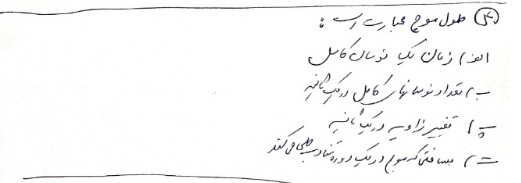 ۴) طول موج عبارت است :
الف) زمان یک نوسان کامل
ب) تعداد نوسانهای کامل در یک ثانیه
پ) تغییر زاویه در یک ثانیه
ت) مسافتی که موج در یک دوره تناوب طی می کند